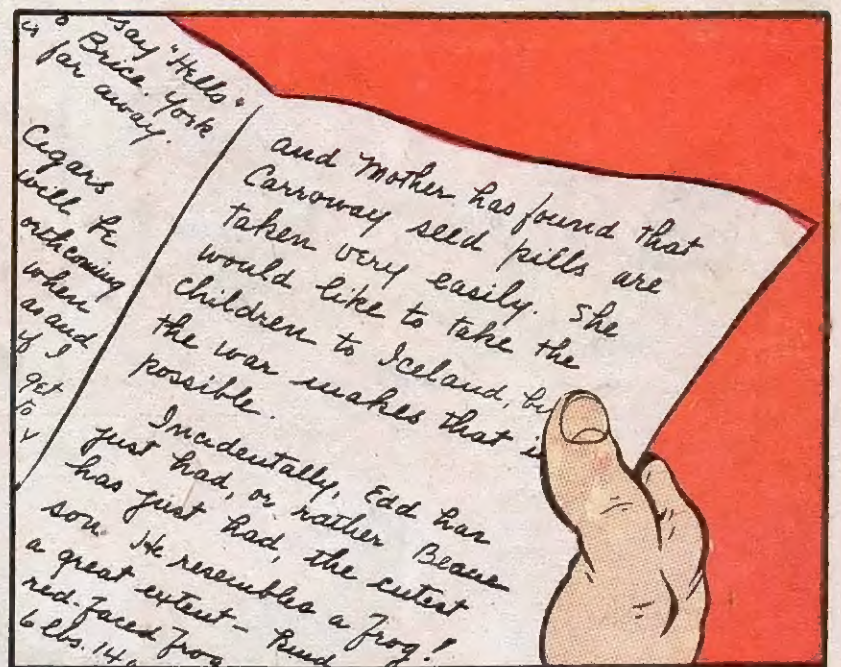 say "Hello"
Brice. York
is far away.
Cigars
will be
orthcoming
when
as and
if I
get
to
and Mother has found that
Carroway seed pills are
taken very easily. She
would like to take the
children to Iceland, bu
the war makes that i
possible.
Incidentally, Edd has
just had, or rather Beane
has just had, the cutest
son. He resembles a frog!
a great extent—
red-faced frog
6 lbs. 14